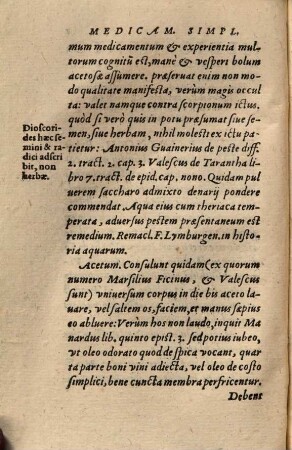 MEDICAM. SIMPL.
mum medicamentum & experientia mul-
torum cognitũ est, manè & vesperi bolum
acetosæ assumere. præseruat enim non mo
do qualitate manifesta, verùm magis occul
ta: valet namque contra scorpionum ictus.
quòd si verò quis in potu præsumat siue se
men, siue herbam, nihil molesti ex ictu pa
tietur: Antonius Guainerius de peste diff.
2. tract. 2. cap. 3. Valescus de Tarantha li
bro 7. tract. de epid. cap. nono. Quidam pul
uerem saccharo admixto denarij pondere
commendat. Aqua eius cum theriaca tem
perata, aduersus pestem præsentaneum est
remedium. Remacl. F. Lymburgen. in histo
ria aquarum.
Dioscori-
des hæc se
mini & ra
dici adscri
bit, non
herbæ.
Acetum. Consulunt quidam (ex quorum
numero Marsilius Ficinus, & Valescus
sunt) vniuersum corpus in die bis aceto la
uare, vel saltem os, faciem, et manus sæpius
eo abluere: Verùm hos non laudo, inquit Ma
nardus lib. quinto epist. 3. sed potius iubeo,
vt oleo odorato quod de spica vocant, quar
ta parte boni vini adiecta, vel oleo de costo
simplici, bene cuncta membra perfricentur.
Debent